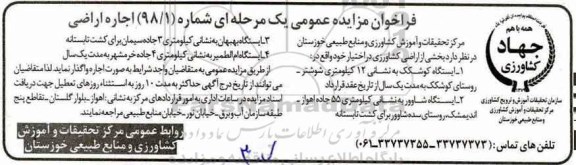 فراخوان مزایده عمومی یک مرحله ای شماره (۹۸/۱) اجاره اراضی
همه با هم
جهاد
کشاورزی
سازمان تحقیقات، آموزش و ترویج کشاورزی
مرکز تحقیقات و آموزش کشاورزی
و منابع طبیعی خوزستان
مرکز تحقیقات و آموزش کشاورزی و منابع طبیعی خوزستان
در نظر دارد بخشی از اراضی کشاورزی در اختیار خود واقع در:
۱. ایستگاه کوشکک به نشانی ۱۲ کیلومتری شوشتر -
روستای کوشکک به مدت یک سال از تاریخ عقد قرارداد
۲. ایستگاه شاوور به نشانی کیلومتری ۵۵ جاده اهواز -
اندیمشک، روستای سده شاوور برای کشت تابستانه
۳. ایستگاه بهبهان به نشانی کیلومتری ۳ جاده سیمان برای کشت تابستانه
۴. ایستگاه ام الطمیر به نشانی کیلومتری ۴ جاده خرمشهر به مدت یک سال
از طریق مزایده عمومی به متقاضیان واجد شرایط به صورت اجاره واگذار نماید. لذا متقاضیان
می توانند از تاریخ درج آگهی حداکثر به مدت ۱۰ روز به استثناء روزهای تعطیل جهت دریافت
اسناد مزایده در ساعات اداری به امور قراردادهای مرکز به نشانی: اهواز، بلوار گلستان، تقاطع پنج
طبقه سازمان آب و برق، خیابان نور، خیابان منابع طبیعی مراجعه نمایند.
تلفن های تماس: (۳۳۷۳۷۳۷۳ - ۳۳۷۳۷۳۵۵-۰۶۱)
روابط عمومی مرکز تحقیقات و آموزش
کشاورزی و منابع طبیعی خوزستان